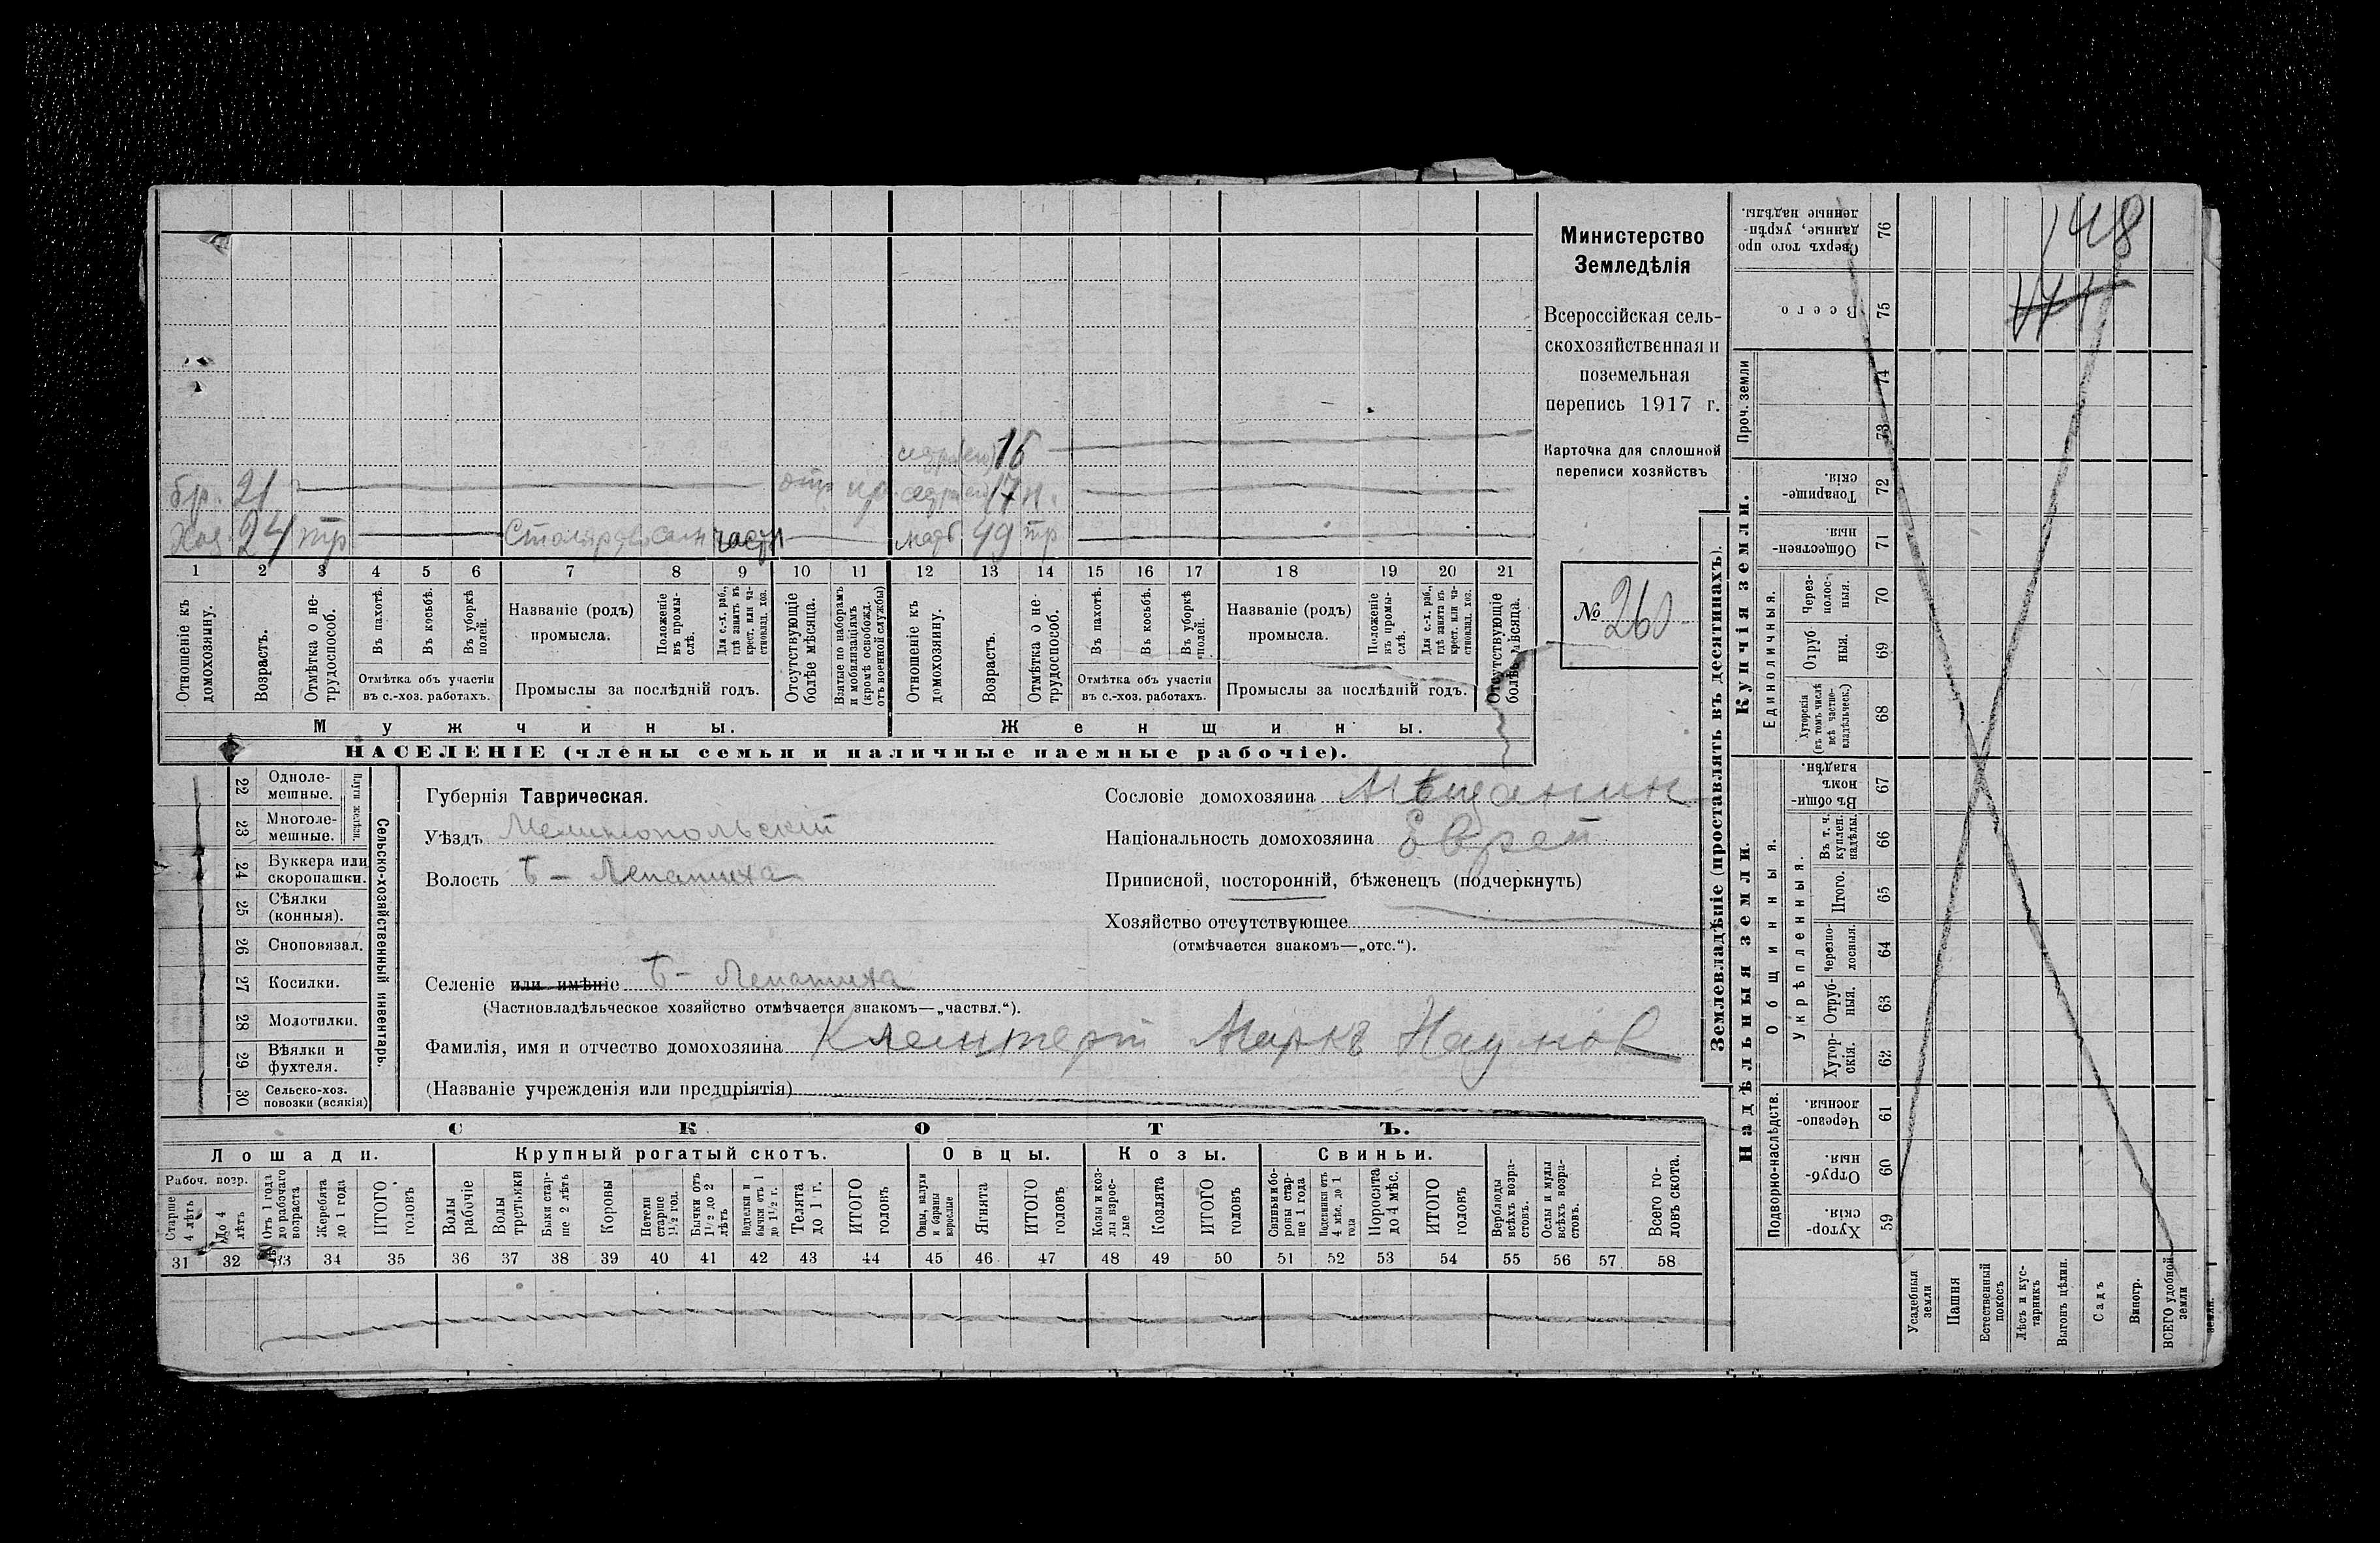 148
бр. 21
16
17 н.
Хоз. 24 тр
Столяр
мать 49 тр
1 2 3 4 5 6 7 8 9 10 11 12 13 14 15 16 17 18 19 20 21
Отношеніе къ домохозяину.
Возрастъ.
Отмѣтка о не-трудоспособ.
Въ пахотѣ.
Въ косьбѣ.
Въ уборкѣ полей.
Отмѣтка объ участіи
въ с.-хоз. работахъ.
Названіе (родъ)
промысла.
Положеніе въ промы-слѣ.
Для с.-х. раб., гдѣ занятъ въ крест. или ча-стновлад. хоз.
Промыслы за послѣдній годъ.
Отсутствующіе болѣе мѣсяца.
Взятые по наборамъ и мобилизаціямъ (кромѣ освобожд. отъ военной службы)
Отношеніе къ домохозяину.
Возрастъ.
Отмѣтка о не-трудоспособ.
Въ пахотѣ.
Въ косьбѣ.
Въ уборкѣ полей.
Отмѣтка объ участіи
въ с.-хоз. работахъ.
Названіе (родъ)
промысла.
Положеніе въ промы-слѣ.
Для с.-х. раб., гдѣ занята въ крест. или ча-стновлад. хоз.
Промыслы за послѣдній годъ.
Отсутствующіе болѣе мѣсяца.
Мужчины. Женщины.
НАСЕЛЕНІЕ (члены семьи и наличные наемные рабочіе).
Министерство
Земледѣлія
Всероссійская сель-
скохозяйственная и
поземельная
перепись 1917 г.
Карточка для сплошной
переписи хозяйствъ
№ 260
22 Одноле-мешные.
23 Многоле-мешные.
Плуги желѣзн.
24 Буккера или скоропашки.
25 Сѣялки (конныя).
26 Сноповязал.
27 Косилки.
28 Молотилки.
29 Вѣялки и фухтеля.
30 Сельско-хоз. повозки (всякія)
Сельско-хозяйственный инвентарь.
Губернія Таврическая.
Уѣздъ Мелитопольскій
Волость Б – Лепатиха
Селеніе или имѣніе Б – Лепатиха
(Частновладѣльческое хозяйство отмѣчается знакомъ—„частвл.“).
Сословіе домохозяина Мѣщанин
Національность домохозяина Еврей
Приписной, посторонній, бѣженецъ (подчеркнуть)
Хозяйство отсутствующее
(отмѣчается знакомъ—„отс.“).
Фамилія, имя и отчество домохозяина Клейтерт Маркъ Наумов
(Названіе учрежденія или предпріятія)
СКОТЪ.
Лошади. Крупный рогатый скотъ. Овцы. Козы. Свиньи.
Рабоч. возр.
Старше 4 лѣтъ
До 4 лѣтъ
Отъ 1 года до рабочаго возраста
Жеребята до 1 года
ИТОГО головъ
Волы рабочіе
Волы третьяки
Быки стар-ше 2 лѣтъ
Коровы
Нетели старше 1½ год.
Бычки отъ 1½ до 2 лѣтъ
Подтелки и бычки отъ 1 до 1½ г.
Телята до 1 г.
ИТОГО головъ
Овцы, валухи и бараны взрослые
Ягнята
ИТОГО головъ
Козы и коз-лы взрос-лые
Козлята
ИТОГО головъ
Свиньи и бо-ровы стар-ше 1 года
Подсвинки отъ 4 мѣс. до 1 года
Поросята до 4 мѣс.
ИТОГО головъ
Верблюды всѣхъ возра-стовъ.
Ослы и мулы всѣхъ возра-стовъ.
Всего го-ловъ скота.
31 32 33 34 35 36 37 38 39 40 41 42 43 44 45 46 47 48 49 50 51 52 53 54 55 56 57 58
Землевладѣніе (проставлять въ десятинахъ).
Надѣльныя земли. Купчія земли. Проч. земли
Подворно-наслѣдств.
Общинныя.
Укрѣпленныя.
Единоличныя.
Сверхъ того про-данные, укрѣп-ленные надѣлы. 76
Всего 75
74
73
Товарище-скія. 72
Обществен-ныя. 71
Через-полос-ныя. 70
Отруб-ныя. 69
Хуторскія (въ томъ числѣ всѣ частно-владѣльческ.) 68
Въ общи-номъ владѣн. 67
Въ т. ч. куплен. надѣлы. 66
Итого. 65
Черезпо-лосныя. 64
Отруб-ныя. 63
Хутор-скія. 62
Черезпо-лосныя. 61
Отруб-ныя. 60
Хутор-скія. 59
Усадебныя земли
Пашня
Естественный покосъ
Лѣсъ и кус-тарникъ
Выгонъ цѣлин.
Садъ
Виногр.
ВСЕГО удобной земли
земли.